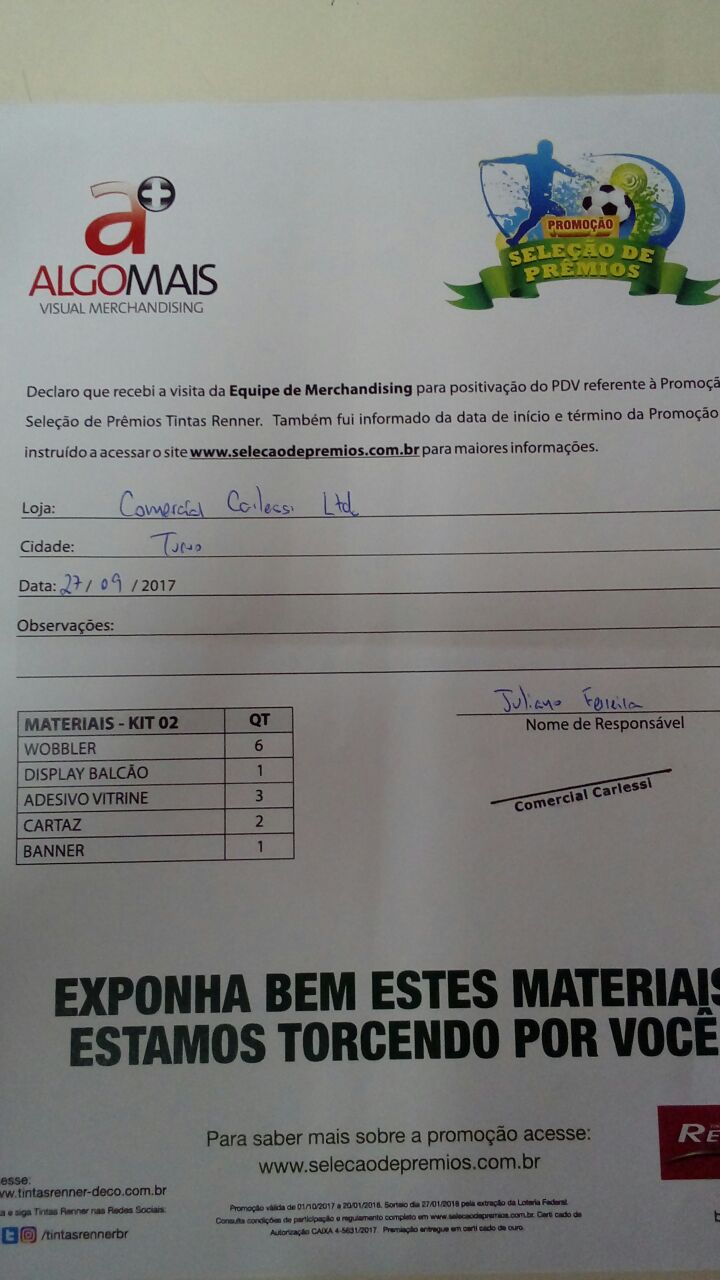 a+
ALGOMAIS
VISUAL MERCHANDISING
PROMOÇÃO
SELEÇÃO DE
PRÊMIOS
Declaro que recebi a visita da Equipe de Merchandising para positivação do PDV referente à Promoçã
Seleção de Prêmios Tintas Renner. Também fui informado da data de início e término da Promoção
instruído a acessar o site www.selecaodepremios.com.br para maiores informações.
Loja: Comercial Carlessi Ltda
Cidade: Turvo
Data: 27/ 09 / 2017
Observações:
Juliano Fereira
Nome de Responsável
Comercial Carlessi
MATERIAIS - KIT 02 QT
WOBBLER 6
DISPLAY BALCÃO 1
ADESIVO VITRINE 3
CARTAZ 2
BANNER 1
EXPONHA BEM ESTES MATERIAIS
ESTAMOS TORCENDO POR VOCÊ
Para saber mais sobre a promoção acesse:
www.selecaodepremios.com.br
RE
esse:
w.tintasrenner-deco.com.br
a e siga Tintas Renner nas Redes Sociais:
/tintasrennerbr
Promoção válida de 01/10/2017 a 20/01/2018. Sorteio dia 27/01/2018 pela extração da Loteria Federal.
Consulte condições de participação e regulamento completo em www.selecaodepremios.com.br. Certi cado de
Autorização CAIXA 4-5631/2017. Premiação entregue em certi cado de ouro.
b